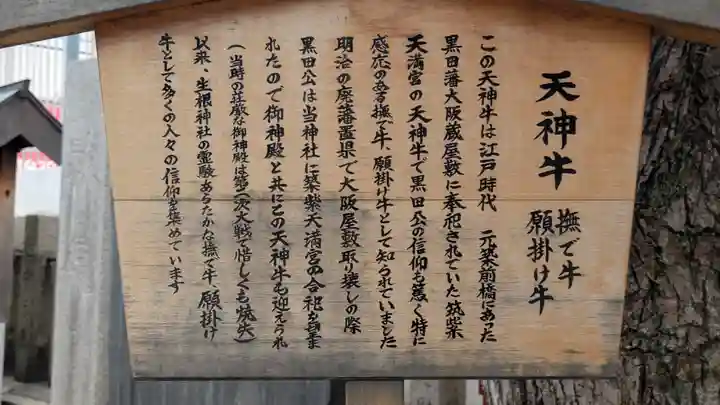 天神牛
撫で牛
願掛け牛
この天神牛は江戸時代 元筑前橋にあった
黒田藩大阪蔵屋敷に奉祀されていた筑紫
天満宮の天神牛で黒田公の信仰も篤く特に
感応のある撫で牛、願掛け牛として知られていました
明治の廃藩置県で大阪屋敷取り壊しの際
黒田公は当神社に築紫天満宮の合祀を望ま
れたので御神殿と共にこの天神牛も迎えられ
(当時の荘厳な御神殿は第二次大戦で惜しくも焼失)
以来、生根神社の霊験あらたかな撫で牛、願い掛け
牛として多くの人々の信仰を集めています